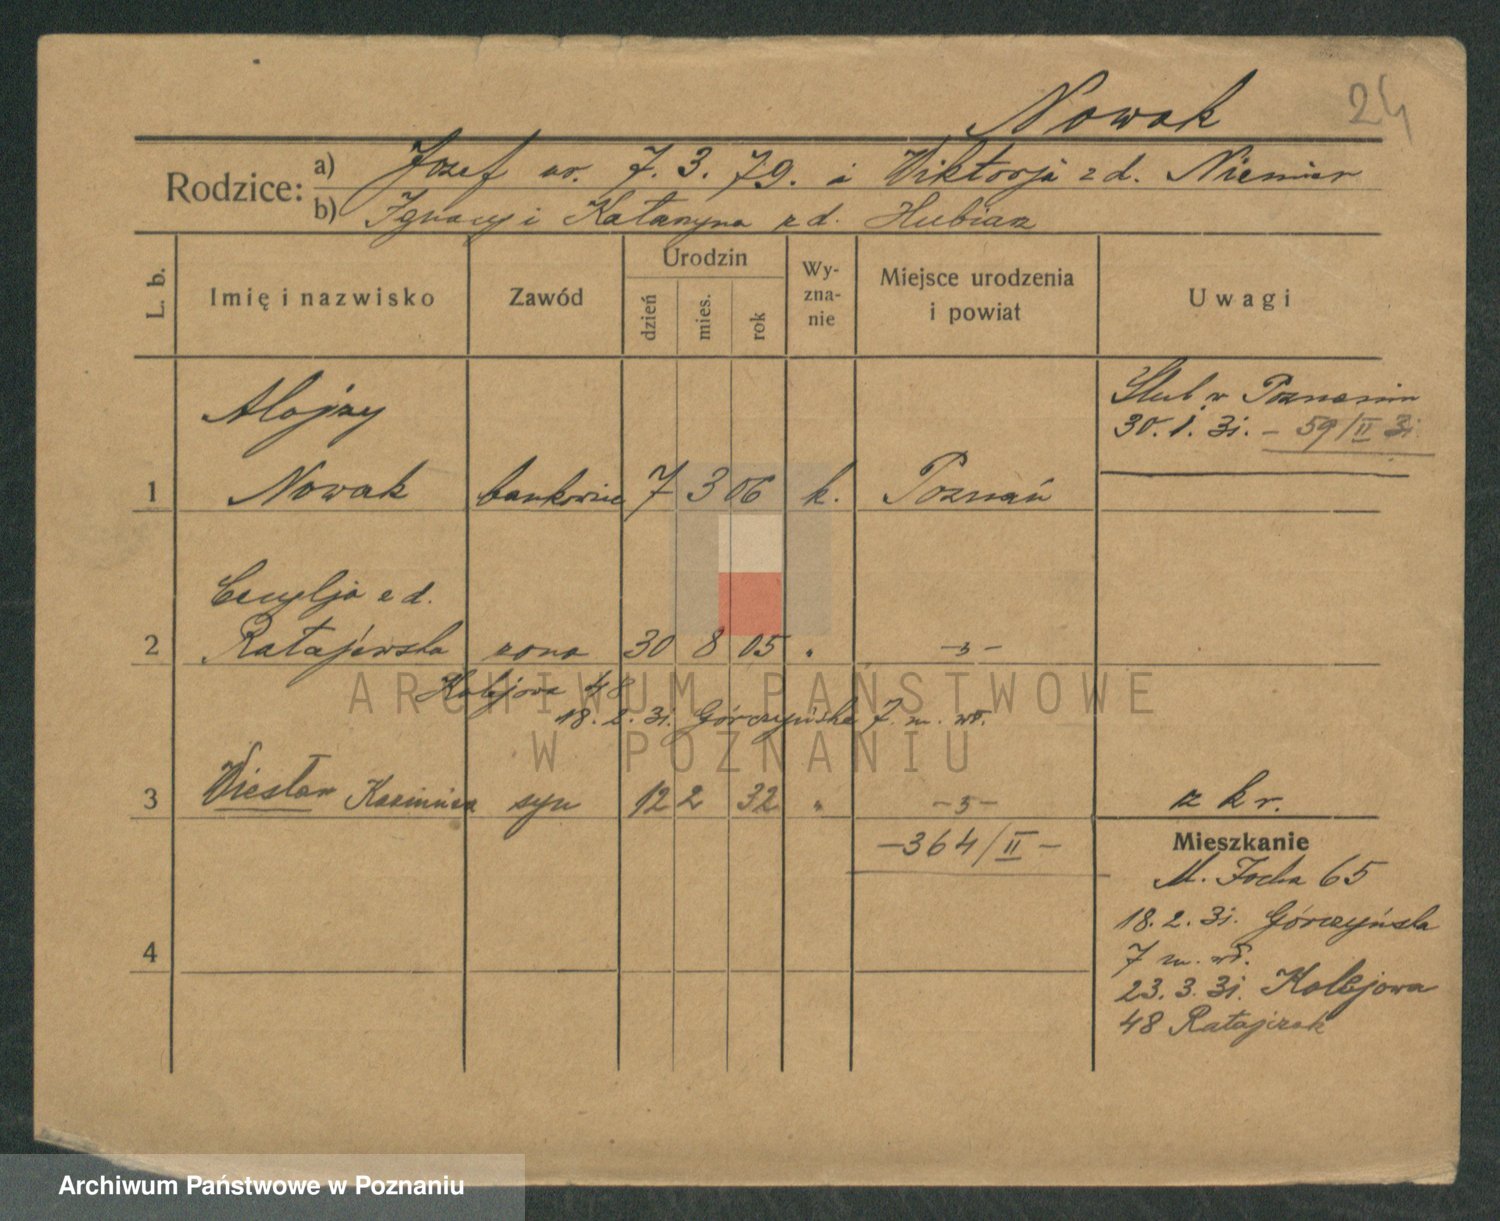 Nowak
24
Rodzice:
a) Józef ur. 7. 3. 79. i Wiktorja z d. Niemier
b) Ignacy i Katarzyna z d. Hubiak
L. b.
Imię i nazwisko
Zawód
Urodzin
dzień
mies.
rok
Wy-
zna-
nie
Miejsce urodzenia
i powiat
Uwagi
Alojzy
Ślub w Poznaniu
30. 1. 31. – 59/II 31
1 Nowak bankowiec 7 3 06 k. Poznań
Cecylja z d.
2 Ratajewska żona 30 8 05 " –"–
Kolejowa 48
18. 2. 31. Górczyńska 7 m. wł.
3 Wiesław Kazimierz syn 12 2 32 " –"– z k r.
–364/II–
Mieszkanie
M. Focha 65
18. 2. 31. Górczyńska
7 m. wł.
23. 3. 31. Kolejowa
48 Ratajczak
4
ARCHIWUM PAŃSTWOWE
W POZNANIU
Archiwum Państwowe w Poznaniu